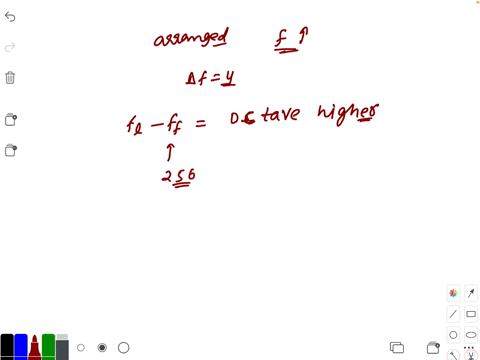 arranged f ↑
Δf = 4
fl - ff = Octave higher
↑
256